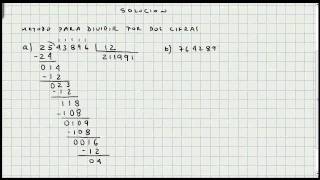 SOLUCION
METODO PARA DIVIDIR POR DOS CIFRAS
a) 2543896 | 12 b) 764289
-24 211991
014
-12
023
-12
118
-108
0109
-108
0016
-12
04